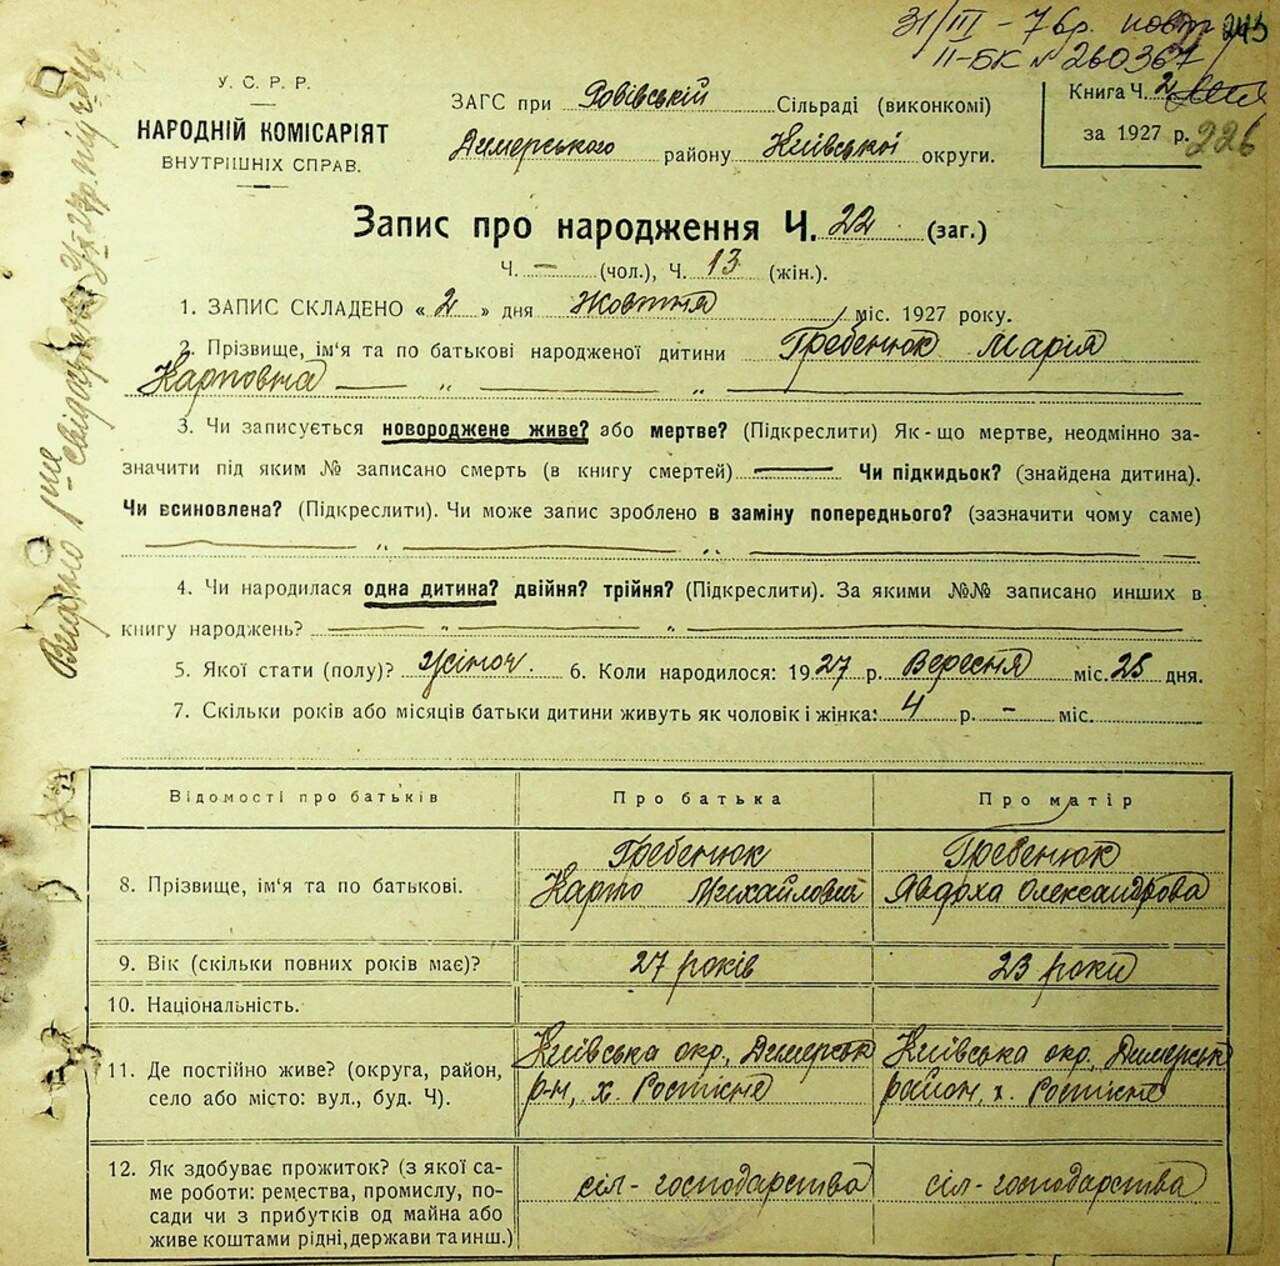 31/III – 76р. повт 245
II-БК № 260367
У. С. Р. Р.
НАРОДНІЙ КОМІСАРІЯТ
ВНУТРІШНІХ СПРАВ.
ЗАГС при Ровівській Сільраді (виконкомі)
Димерського району Київської округи.
Книга Ч. 2
за 1927 р. 226
Запис про народження Ч. 22 (заг.)
Ч. – (чол.), Ч. 13 (жін.).
1. ЗАПИС СКЛАДЕНО « 2 » дня Жовтня міс. 1927 року.
2. Прізвище, ім'я та по батькові народженої дитини Гребенюк Марія
Карповна — „ — „ —
3. Чи записується новороджене живе? або мертве? (Підкреслити) Як-що мертве, неодмінно за-
значити під яким № записано смерть (в книгу смертей) — Чи підкидьок? (знайдена дитина).
Чи всиновлена? (Підкреслити). Чи може запис зроблено в заміну попереднього? (зазначити чому саме)
— „ — „ —
4. Чи народилася одна дитина? двійня? трійня? (Підкреслити). За якими №№ записано инших в
книгу народжень? — „ — „ —
5. Якої стати (полу)? жіноч. 6. Коли народилося: 1927 р. Вересня міс. 25 дня.
7. Скільки років або місяців батьки дитини живуть як чоловік і жінка: 4 р. – міс.
Відомості про батьків
Про батька
Про матір
8. Прізвище, ім'я та по батькові.
Гребенюк
Карпо Михайлович
Гребенюк
Явдоха Олександрова
9. Вік (скільки повних років має)?
27 років
23 роки
10. Національність.
11. Де постійно живе? (округа, район,
село або місто: вул., буд. Ч).
Київська окр., Димерськ
р-н, х. Ростісне
Київська окр., Димерськ
район, х. Ростісне
12. Як здобуває прожиток? (з якої са-
ме роботи: ремества, промислу, по-
сади чи з прибутків од майна або
живе коштами рідні, держави та инш.)
сіл-господарства
сіл-господарства
Видано